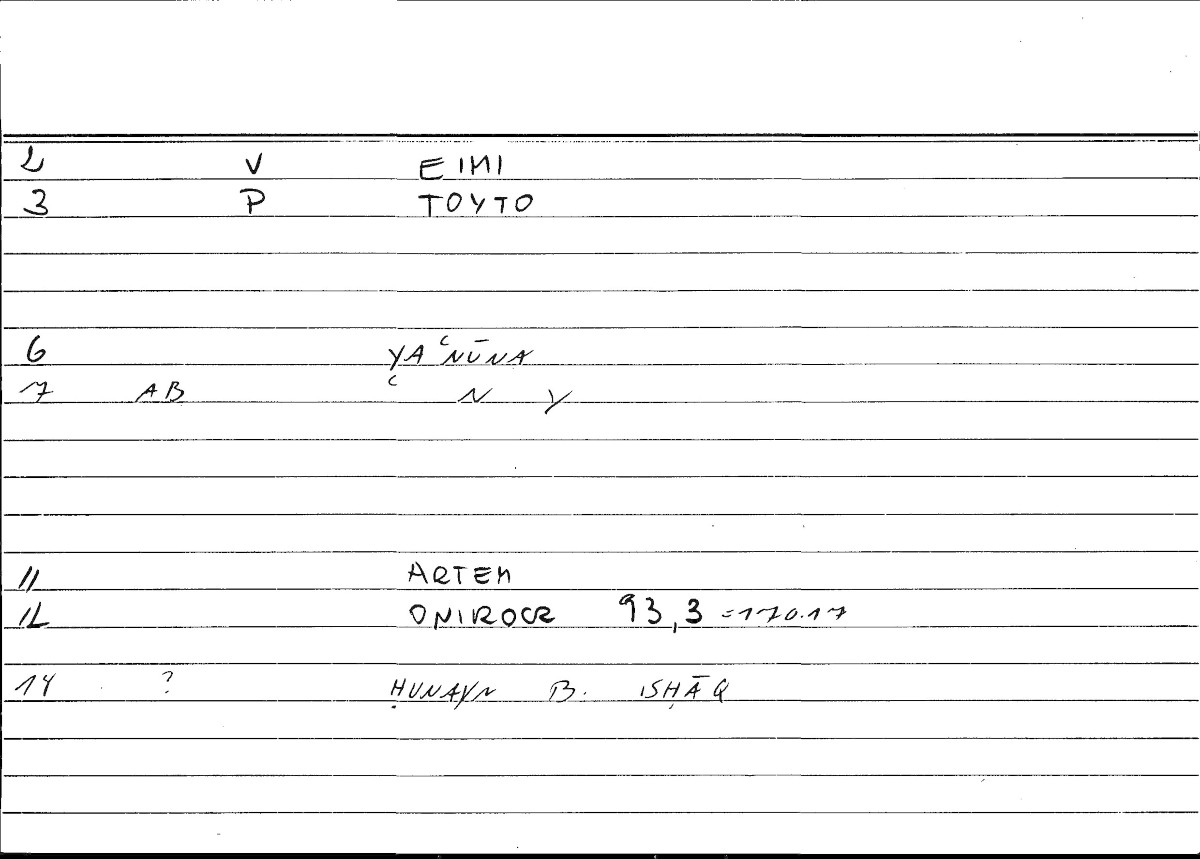 2 V EIMI
3 P TOYTO
6 YAʿNŪNA
7 AB ʿ N Y
11 ARTEM
12 ONIROCR 93,3 =170.17
14 ? ḤUNAYN B. ISḤĀQ